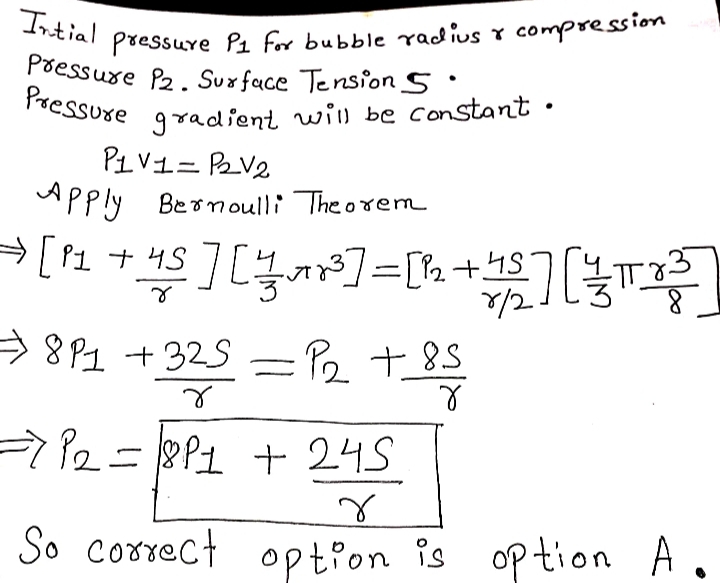 Intial pressure P1 for bubble radius r compression
Pressure P2. Surface Tension S.
Pressure gradient will be constant.
P1 V1 = P2 V2
Apply Bernoulli Theorem
⇒ [P1 + 4S/r] [4/3 πr³] = [P2 + 4S/(r/2)] [4/3 π r³/8]
⇒ 8P1 + 32S/r = P2 + 8S/r
⇒ P2 = 8P1 + 24S/r
So correct option is option A.